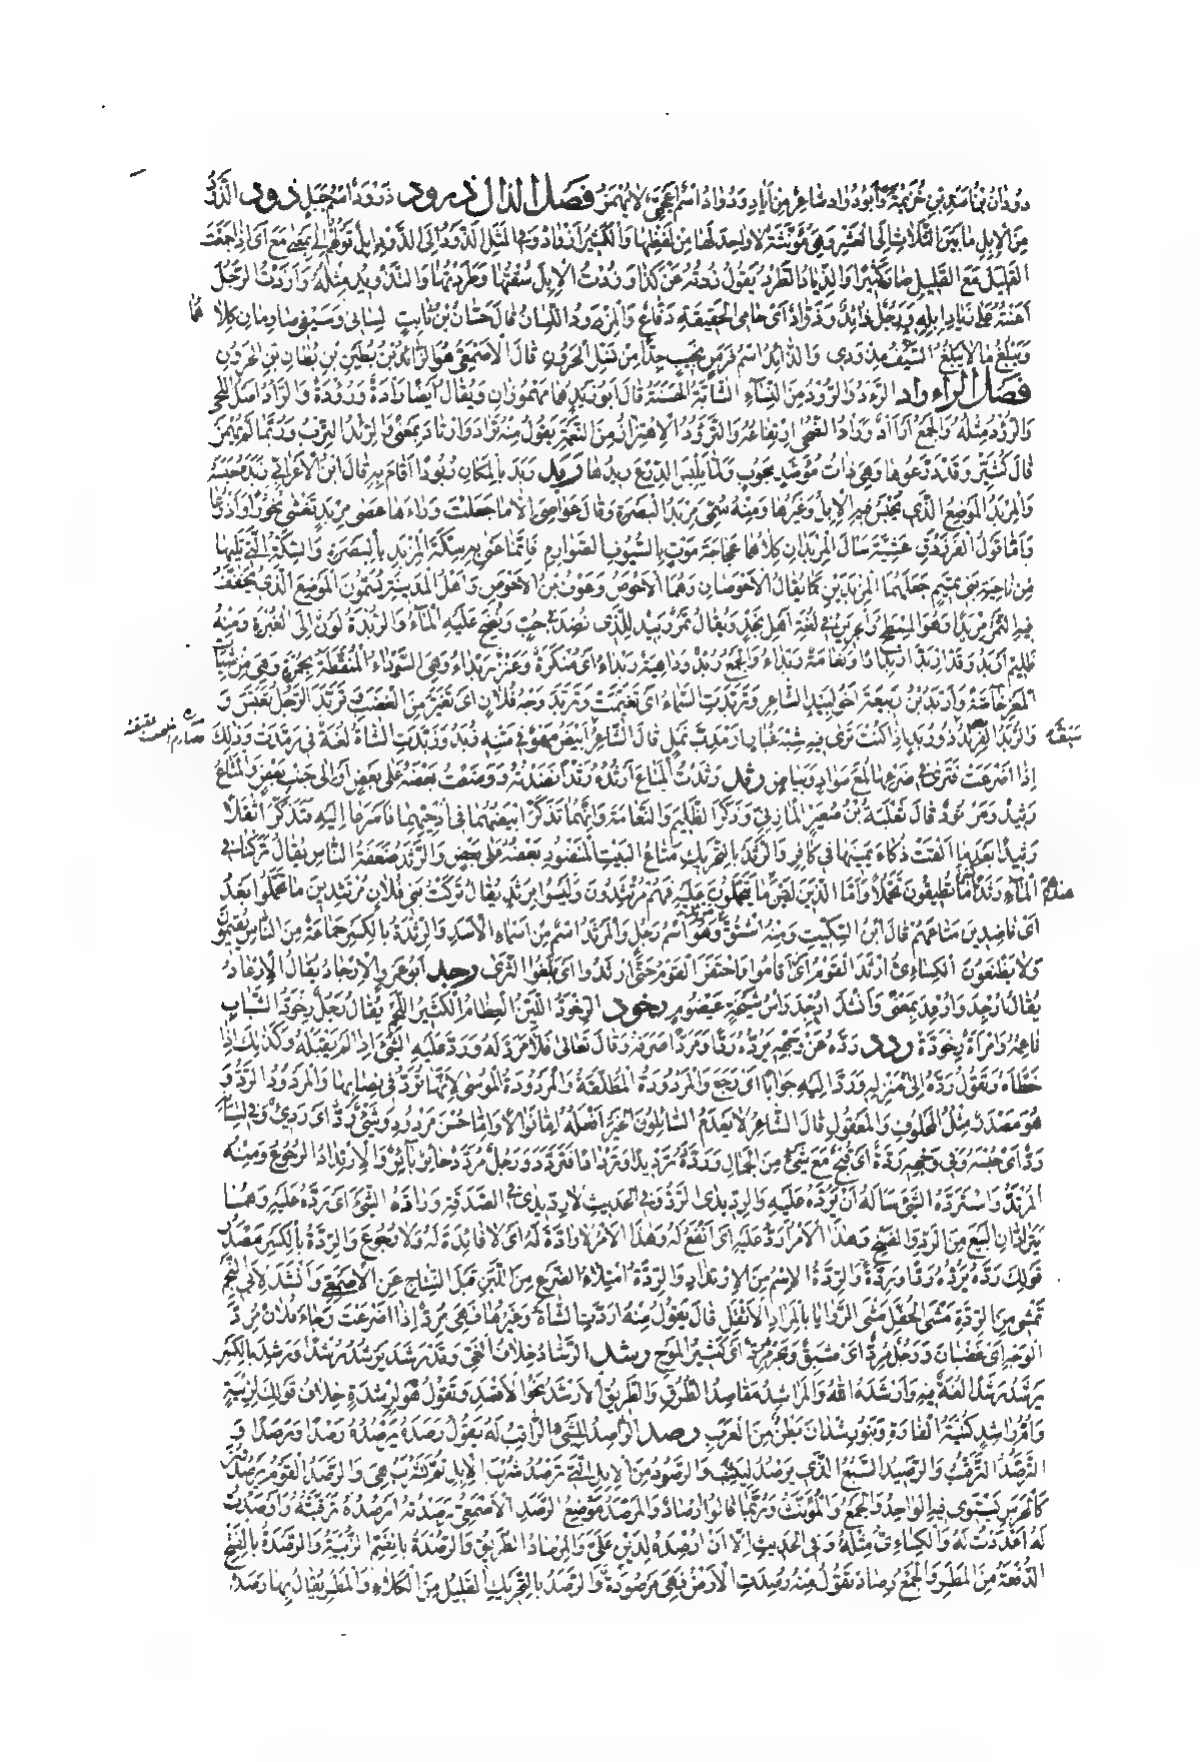 دُودَانُ بْنُ أَسَدِ بْنِ خُزَيْمَةَ وَأَبُو دُوَادٍ شَاعِرٌ مِنْ إِيَادٍ وَدُوَادُ اسْمٌ أَعْجَمِيٌّ لَا يُهْمَزُ فَصْلُ الذَّالِ ذرود ذَرْوَدٌ اسْمُ جَبَلٍ ذود الذَّوْدُ
مِنَ الْإِبِلِ مَا بَيْنَ الثَّلَاثِ إِلَى الْعَشْرِ وَهِيَ مُؤَنَّثَةٌ لَا وَاحِدَ لَهَا مِنْ لَفْظِهَا وَالْكَثِيرُ أَذْوَادٌ وَفِي الْمَثَلِ الذَّوْدُ إِلَى الذَّوْدِ إِبِلٌ قَوْلُهُمْ إِلَى بِمَعْنَى مَعَ أَيْ إِذَا جَمَعْتَ
الْقَلِيلَ مَعَ الْقَلِيلِ صَارَ كَثِيرًا وَالذِّيَادُ الطَّرْدُ يَقُولُ ذُدْتُهُ عَنْ كَذَا وَذُدْتُ الْإِبِلَ سُقْتُهَا وَطَرَدْتُهَا وَالتَّذْوِيدُ مِثْلُهُ وَأَذَدْتُ الرَّجُلَ
أَعَنْتُهُ عَلَى ذِيَادِ إِبِلِهِ وَرَجُلٌ ذَائِدٌ وَذَوَّادٌ أَيْ حَامِي الْحَقِيقَةِ دَفَّاعٌ وَالْمِذْوَدُ اللِّسَانُ قَالَ حَسَّانُ بْنُ ثَابِتٍ لِسَانِي وَسَيْفِي صَارِمَانِ كِلَاهُمَا
وَيَبْلُغُ مَا لَا يَبْلُغُ السَّيْفُ مِذْوَدِي وَالذَّائِدُ اسْمُ فَرَسٍ نَجِيبٍ جِدًّا مِنْ نَسْلِ الْحَرُونِ قَالَ الْأَصْمَعِيُّ هُوَ الذَّائِدُ بْنُ بُطَيْنِ بْنِ بُطَانِ بْنِ الْحَرُونِ
فَصْلُ الرَّاءِ راد الرَّءْدُ وَالرُّؤْدُ مِنَ النِّسَاءِ الشَّابَّةُ الْحَسَنَةُ قَالَ أَبُو زَيْدٍ هُمَا مَهْمُوزَانِ وَيُقَالُ أَيْضًا رَأْدَةٌ وَرُؤْدَةٌ وَالرَّأْدُ أَصْلُ اللَّحْيِ
وَالرُّؤْدُ مِثْلُهُ وَالْجَمْعُ أَرْآدٌ وَرَأْدُ الضُّحَى ارْتِفَاعُهُ وَالتَّرَؤُّدُ الْاهْتِزَازُ مِنَ النَّعْمَةِ يَقُولُ مِنْهُ تَرَأَّدَ وَارْتَأَدَ بِمَعْنًى وَالرِّئْدُ التِّرْبُ وَرُبَّمَا لَمْ يُهْمَزْ
قَالَ كُثَيِّرٌ وَقَدْ دَرَّعُوهَا وَهِيَ ذَاتُ مُؤَصَّدٍ مَجُوبٍ وَلَمَّا يَلْبَسِ الدِّرْعَ رِيدُهَا ربد رَبَدَ بِالْمَكَانِ رُبُودًا أَقَامَ بِهِ قَالَ ابْنُ الْأَعْرَابِيِّ رَبَدَهُ حَبَسَهُ
وَالْمِرْبَدُ الْمَوْضِعُ الَّذِي يُحْبَسُ فِيهِ الْإِبِلُ وَغَيْرُهَا وَمِنْهُ سُمِّيَ مِرْبَدُ الْبَصْرَةِ وَقَالَ عَوَاصِيَ إِلَّا مَا جَعَلْتُ وَرَاءَهَا عَصَى مِرْبَدٍ تَغْشَى نُحُورًا وَأَذْرُعَا
وَأَمَّا قَوْلُ الْفَرَزْدَقِ عَشِيَّةَ سَالَ الْمِرْبَدَانِ كِلَاهُمَا عَجَاجَةَ مَوْتٍ بِالسُّيُوفِ الصَّوَارِمِ فَإِنَّمَا عَنَى بِهِ سِكَّةَ الْمِرْبَدِ بِالْبَصْرَةِ وَالسِّكَّةَ الَّتِي تَلِيهَا
مِنْ نَاحِيَةِ بَنِي تَمِيمٍ جَعَلَهُمَا الْمِرْبَدَيْنِ كَمَا يُقَالُ الْأَحْوَصَانِ وَهُمَا الْأَحْوَصُ وَعَوْفُ بْنُ الْأَحْوَصِ وَأَهْلُ الْمَدِينَةِ يُسَمُّونَ الْمَوْضِعَ الَّذِي يُجَفَّفُ
فِيهِ التَّمْرُ مِرْبَدًا وَهُوَ الْمِسْطَحُ وَالْجَرِينُ فِي لُغَةِ أَهْلِ نَجْدٍ وَيُقَالُ تَمْرٌ رَبِيدٌ لِلَّذِي نُضِّدَ فِي جُبٍّ وَنُضِحَ عَلَيْهِ الْمَاءُ وَالرُّبْدَةُ لَوْنٌ إِلَى الْغُبْرَةِ وَمِنْهُ
ظَلِيمٌ أَرْبَدُ وَقَدِ ارْبَدَّ ارْبِدَادًا وَنَعَامَةٌ رَبْدَاءُ وَالْجَمْعُ رُبْدٌ وَدَاهِيَةٌ رَبْدَاءُ أَيْ مُنْكَرَةٌ وَعَنْزٌ رَبْدَاءُ وَهِيَ السَّوْدَاءُ الْمُنَقَّطَةُ بِحُمْرَةٍ وَهِيَ مِنْ شِيَاتِ
الْمَعْزِ خَاصَّةً وَأَرْبَدُ بْنُ رَبِيعَةَ أَخُو لَبِيدٍ الشَّاعِرِ وَتَرَبَّدَتِ السَّمَاءُ أَيْ تَغَيَّمَتْ وَتَرَبَّدَ وَجْهُ فُلَانٍ أَيْ تَغَيَّرَ مِنَ الْغَضَبِ وَتَرَبَّدَ الرَّجُلُ تَعَبَّسَ وَ
وَالرُّبَدُ الْفِرِنْدُ ذُو رُبَدٍ إِذَا كُنْتَ تَرَى فِيهِ شِبْهَ غُبَارٍ أَوْ مَدَبِّ نَمْلٍ قَالَ الشَّاعِرُ أَبْيَضُ مَهْوٌ فِي مَتْنِهِ رُبَدُ وَرَبَّدَتِ الشَّاةُ لُغَةٌ فِي رَمَّدَتْ وَذَلِكَ
إِذَا أَضْرَعَتْ فَتَرَى فِي ضَرْعِهَا لُمَعَ سَوَادٍ وَبَيَاضٍ رثد رَثَدْتُ الْمَتَاعَ أَرْثُدُهُ رَثْدًا نَضَدْتُهُ وَوَضَعْتُ بَعْضَهُ عَلَى بَعْضٍ أَوْ إِلَى جَنْبِ بَعْضٍ وَالْمَتَاعُ
رَثِيدٌ وَمَرْثُودٌ قَالَ ثَعْلَبَةُ بْنُ صُعَيْرٍ الْمَازِنِيُّ وَذَكَرَ الظَّلِيمَ وَالنَّعَامَةَ وَأَنَّهُمَا تَذَكَّرَا بَيْضَهُمَا فِي أُدْحِيِّهِمَا فَأَسْرَعَا إِلَيْهِ فَتَذَكَّرَا ثَقَلًا
رَثِيدًا بَعْدَمَا أَلْقَتْ ذُكَاءُ يَمِينَهَا فِي كَافِرِ وَالرَّثَدُ بِالتَّحْرِيكِ مَتَاعُ الْبَيْتِ الْمَنْضُودُ بَعْضُهُ عَلَى بَعْضٍ وَالرَّثَدُ ضَعَفَةُ النَّاسِ يُقَالُ تَرَكْنَا فِي
الْمَاءِ رَثَدًا مَا يُطِيقُونَ تَحَمُّلًا وَأَمَّا الَّذِينَ لَيْسَ مَا يَحْمِلُونَ عَلَيْهِ فَهُمْ مُرْتَثِدُونَ وَلَيْسُوا بِرَثَدٍ يُقَالُ تَرَكْتُ بَنِي فُلَانٍ مُرْتَثِدِينَ مَا تَحَمَّلُوا بَعْدُ
أَيْ نَاضِدِينَ مَتَاعَهُمْ قَالَ ابْنُ السِّكِّيتِ وَمِنْهُ اشْتُقَّ مَرْثَدٌ وَهُوَ اسْمُ رَجُلٍ وَالْمَرْثَدُ اسْمٌ مِنْ أَسْمَاءِ الْأَسَدِ وَالرِّثْدَةُ بِالْكَسْرِ جَمَاعَةٌ مِنَ النَّاسِ يُقِيمُونَ
وَلَا يَظْعَنُونَ الْكِسَائِيُّ أَرْثَدَ الْقَوْمُ أَيْ أَقَامُوا وَاحْتَفَرَ الْقَوْمُ حَتَّى أَرْثَدُوا أَيْ بَلَغُوا الثَّرَى رجد أَبُو عَمْرٍو الْإِرْجَادُ يُقَالُ الْإِرْعَادُ
يُقَالُ أُرْجِدَ وَأُرْعِدَ بِمَعْنًى وَأَنْشَدَ أُرْجِدَ رَأْسُ شَيْخَةٍ عَيْضُومِ رخود الرِّخْوَدُّ اللَّيِّنُ الْعِظَامِ الْكَثِيرُ اللَّحْمِ يُقَالُ رَجُلٌ رِخْوَدُّ الشَّبَابِ
نَاعِمُهُ وَامْرَأَةٌ رِخْوَدَّةٌ ردد رَدَّهُ عَنْ وَجْهِهِ يَرُدُّهُ رَدًّا وَمَرَدًّا صَرَفَهُ وَقَالَ تَعَالَى فَلَا مَرَدَّ لَهُ وَرَدَّ عَلَيْهِ الشَّيْءَ إِذَا لَمْ يَقْبَلْهُ وَكَذَلِكَ إِذَا
خَطَّأَهُ وَتَقُولُ رَدَّهُ إِلَى مَنْزِلِهِ وَرَدَّ إِلَيْهِ جَوَابًا أَيْ رَجَعَ وَالْمَرْدُودَةُ الْمُطَلَّقَةُ وَالْمَرْدُودَةُ الْمُوسَى لِأَنَّهَا تُرَدُّ فِي نِصَابِهَا وَالْمَرْدُودُ الرَّدُّ وَ
هُوَ مَصْدَرٌ مِثْلُ الْمَحْلُوفِ وَالْمَعْقُولِ قَالَ الشَّاعِرُ لَا يَعْدَمُ السَّائِلُونَ الْخَيْرَ أَفْعَلُهُ إِمَّا نَوَالًا وَإِمَّا حُسْنَ مَرْدُودِ وَشَيْءٌ رَدٌّ أَيْ رَدِيءٌ وَفِي لِسَانِهِ
رَدَّةٌ أَيْ حُبْسَةٌ وَفِي وَجْهِهِ رَدَّةٌ أَيْ قُبْحٌ مَعَ شَيْءٍ مِنَ الْجَمَالِ وَرَدَّدَهُ تَرْدِيدًا وَتَرْدَادًا فَتَرَدَّدَ وَرَجُلٌ مُرَدَّدٌ حَائِرٌ بَائِرٌ وَالْإِرْتِدَادُ الرُّجُوعُ وَمِنْهُ
الْمُرْتَدُّ وَاسْتَرَدَّهُ الشَّيْءَ سَأَلَهُ أَنْ يَرُدَّهُ عَلَيْهِ وَالرِّدِّيدَى الرَّدُّ وَفِي الْحَدِيثِ لَا رِدِّيدَى فِي الصَّدَقَةِ وَرَادَّهُ الشَّيْءَ أَيْ رَدَّهُ عَلَيْهِ وَهُمَا
يَتَرَادَّانِ الْبَيْعَ مِنَ الرَّدِّ وَالْفَسْخِ وَهَذَا الْأَمْرُ أَرَدُّ عَلَيْهِ أَيْ أَنْفَعُ لَهُ وَهَذَا الْأَمْرُ لَا رَادَّةَ لَهُ أَيْ لَا فَائِدَةَ لَهُ وَلَا رُجُوعَ وَالرِّدَّةُ بِالْكَسْرِ مَصْدَرُ
قَوْلِكَ رَدَّهُ يَرُدُّهُ رَدًّا وَرِدَّةً وَالرِّدَّةُ الْإِسْمُ مِنَ الْإِرْتِدَادِ وَالرِّدَّةُ امْتِلَاءُ الضَّرْعِ مِنَ اللَّبَنِ قَبْلَ النِّتَاجِ عَنِ الْأَصْمَعِيِّ وَأَنْشَدَ لِأَبِي النَّجْمِ
تَمْشِي مِنَ الرِّدَّةِ مَشْيَ الْحُفَّلِ مَشْيَ الرَّوَايَا بِالْمَزَادِ الْأَثْقَلِ قَالَ يَقُولُ مِنْهُ أَرَدَّتِ الشَّاةُ وَغَيْرُهَا فَهِيَ مُرِدٌّ إِذَا أَضْرَعَتْ وَجَاءَ فُلَانٌ مُرِدَّ
الْوَجْهِ أَيْ غَضْبَانَ وَرَجُلٌ مُرِدٌّ أَيْ شَبِقٌ وَبَحْرٌ مُرِدٌّ أَيْ كَثِيرُ الْمَوْجِ رشد الرَّشَادُ خِلَافُ الْغَيِّ وَقَدْ رَشَدَ يَرْشُدُ رُشْدًا وَرَشِدَ بِالْكَسْرِ
يَرْشَدُ رَشَدًا لُغَةٌ فِيهِ وَأَرْشَدَهُ اللهُ وَالْمَرَاشِدُ مَقَاصِدُ الطُّرُقِ وَالطَّرِيقُ الْأَرْشَدُ نَحْوُ الْأَقْصَدِ وَتَقُولُ هُوَ لِرِشْدَةٍ خِلَافُ قَوْلِكَ لِزِنْيَةٍ
وَأُمُّ رَاشِدٍ كُنْيَةُ الْفَارَةِ وَبَنُو رَشْدَانَ بَطْنٌ مِنَ الْعَرَبِ رصد الرَّاصِدُ لِلشَّيْءِ الرَّاقِبُ لَهُ يَقُولُ رَصَدَهُ يَرْصُدُهُ رَصْدًا وَرَصَدًا وَ
التَّرَصُّدُ التَّرَقُّبُ وَالرَّصِيدُ السَّبُعُ الَّذِي يَرْصُدُ لِيَثِبَ وَالرَّصُودُ مِنَ الْإِبِلِ الَّتِي تَرْصُدُ شُرْبَ الْإِبِلِ ثُمَّ تَشْرَبُ هِيَ وَالرَّصَدُ الْقَوْمُ يَرْصُدُونَ
كَالْحَرَسِ يَسْتَوِي فِيهِ الْوَاحِدُ وَالْجَمْعُ وَالْمُؤَنَّثُ وَرُبَّمَا قَالُوا أَرْصَادٌ وَالْمَرْصَدُ مَوْضِعُ الرَّصَدِ الْأَصْمَعِيُّ رَصَدْتُهُ أَرْصُدُهُ تَرَقَّبْتُهُ وَأَرْصَدْتُ
لَهُ أَعْدَدْتُ لَهُ وَالْكِسَائِيُّ مِثْلُهُ وَفِي الْحَدِيثِ إِلَّا أَنْ أُرْصِدَهُ لِدَيْنٍ عَلَيَّ وَالْمِرْصَادُ الطَّرِيقُ وَالرُّصْدَةُ بِالضَّمِّ الزُّبْيَةُ وَالرَّصْدَةُ بِالْفَتْحِ
الدُّفْعَةُ مِنَ الْمَطَرِ وَالْجَمْعُ رِصَادٌ تَقُولُ مِنْهُ رُصِدَتِ الْأَرْضُ فَهِيَ مَرْصُودَةٌ وَالرَّصَدُ بِالتَّحْرِيكِ الْقَلِيلُ مِنَ الْكَلَاءِ وَالْمَطَرِ يُقَالُ بِهَا رَصَدٌ